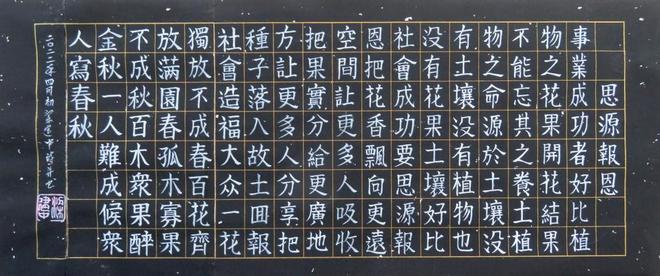 思源報恩
事業成功者好比植
物之花果開花結果
不能忘其之養土植
物之命源於土壤没
有土壤没有植物也
没有花果土壤好比
社會成功要思源報
恩把花香飄向更遠
空間让更多人吸收
把果實分給更廣地
方让更多人分享把
種子落入故土回報
社會造福大众一花
獨放不成春百花齊
放满園春孤木寡果
不成秋百木衆果醉
金秋一人難成候衆
人寫春秋
二〇二二年四月初